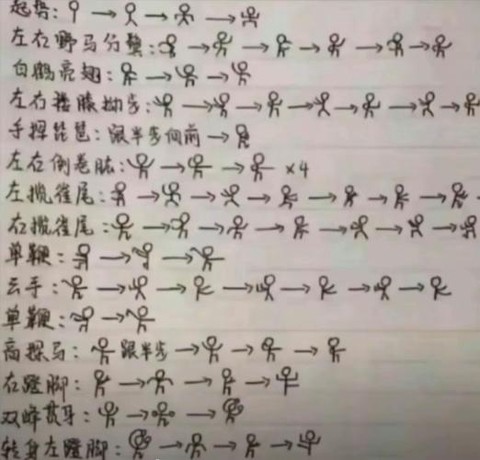 起势:
左右野马分鬃:
白鹤亮翅:
左右搂膝拗步:
手挥琵琶:跟半步向前
左右倒卷肱: ×4
左揽雀尾:
右揽雀尾:
单鞭:
云手:
单鞭:
高探马: 跟半步
右蹬脚:
双峰贯耳:
转身左蹬脚: